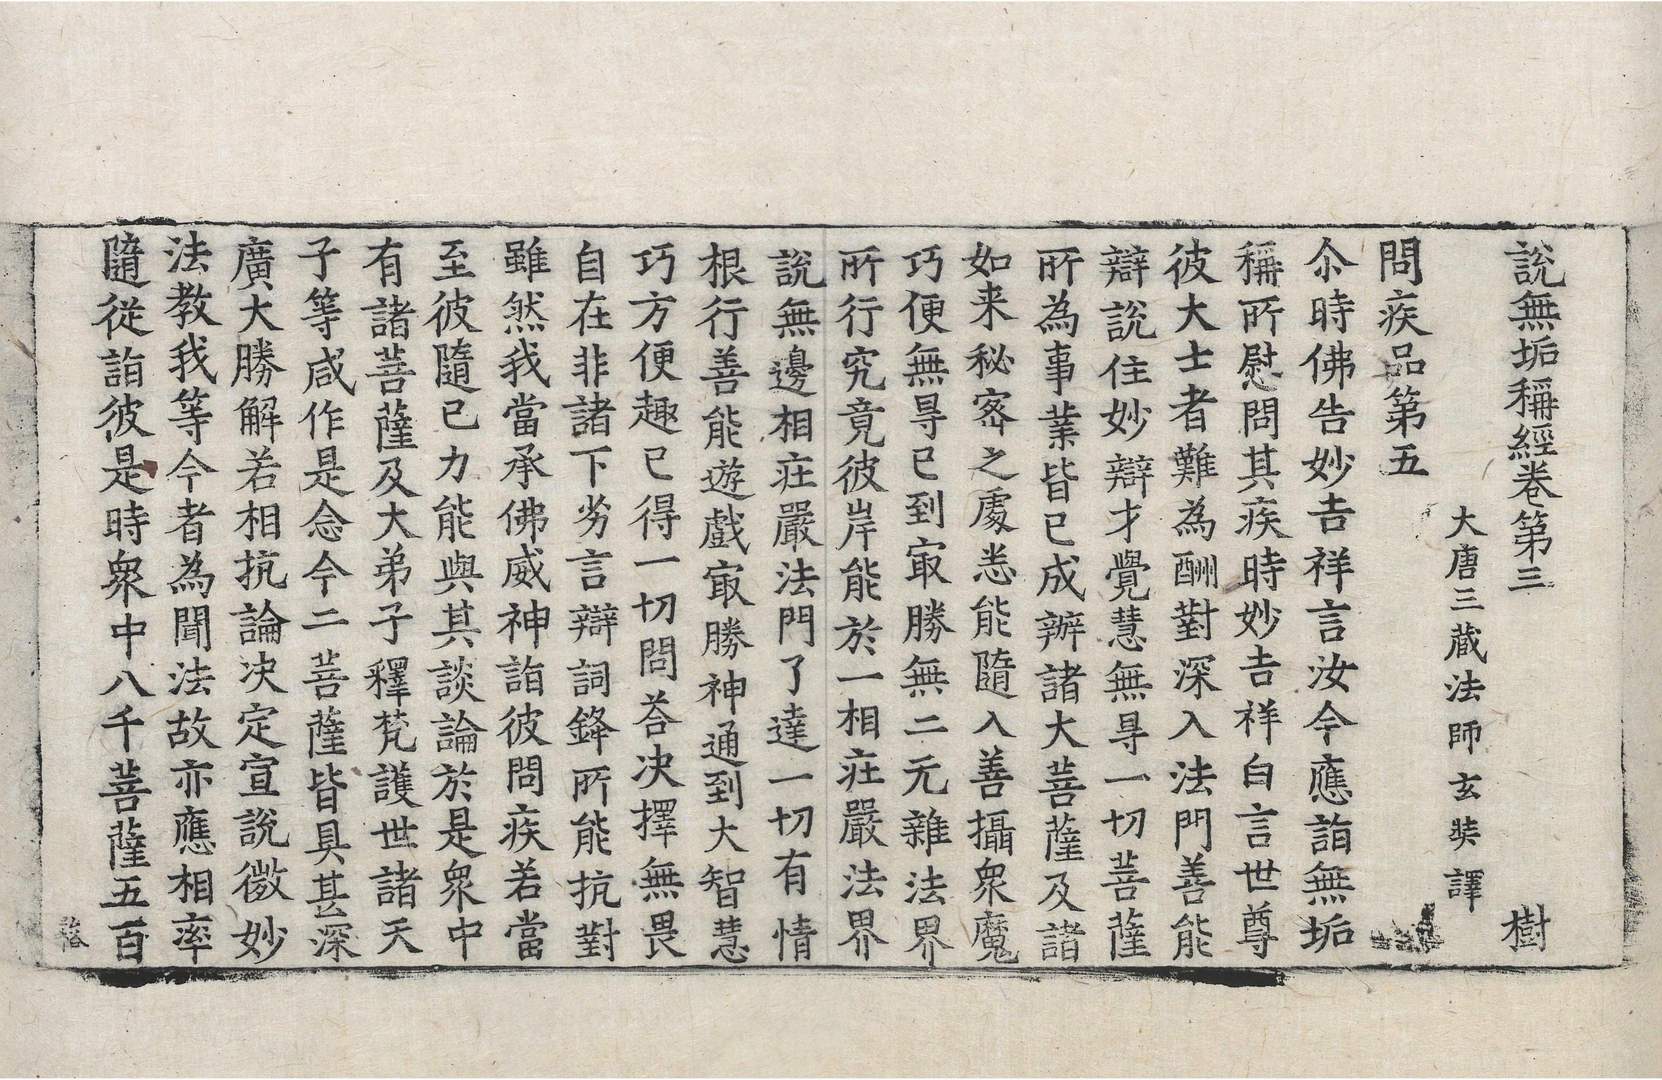 說無垢稱經卷第三 樹
大唐三藏法師玄奘譯
問疾品第五
尒時佛告妙吉祥言汝今應詣無垢
稱所慰問其疾時妙吉祥白言世尊
彼大士者難為酬對深入法門善能
辯說住妙辯才覺慧無㝵一切菩薩
所為事業皆已成辦諸大菩薩及諸
如来秘密之處悉能隨入善攝眾魔
巧便無㝵已到㝡勝無二无雜法界
所行究竟彼岸能於一相莊嚴法界
說無邊相莊嚴法門了達一切有情
根行善能遊戲㝡勝神通到大智慧
巧方便趣已得一切問荅决擇無畏
自在非諸下劣言辯詞鋒所能抗對
雖然我當承佛威神詣彼問疾若當
至彼隨己力能與其談論於是眾中
有諸菩薩及大弟子釋梵護世諸天
子等咸作是念今二菩薩皆具甚深
廣大勝解若相抗論决定宣說微妙
法教我等今者為聞法故亦應相率
隨從詣彼是時眾中八千菩薩五百